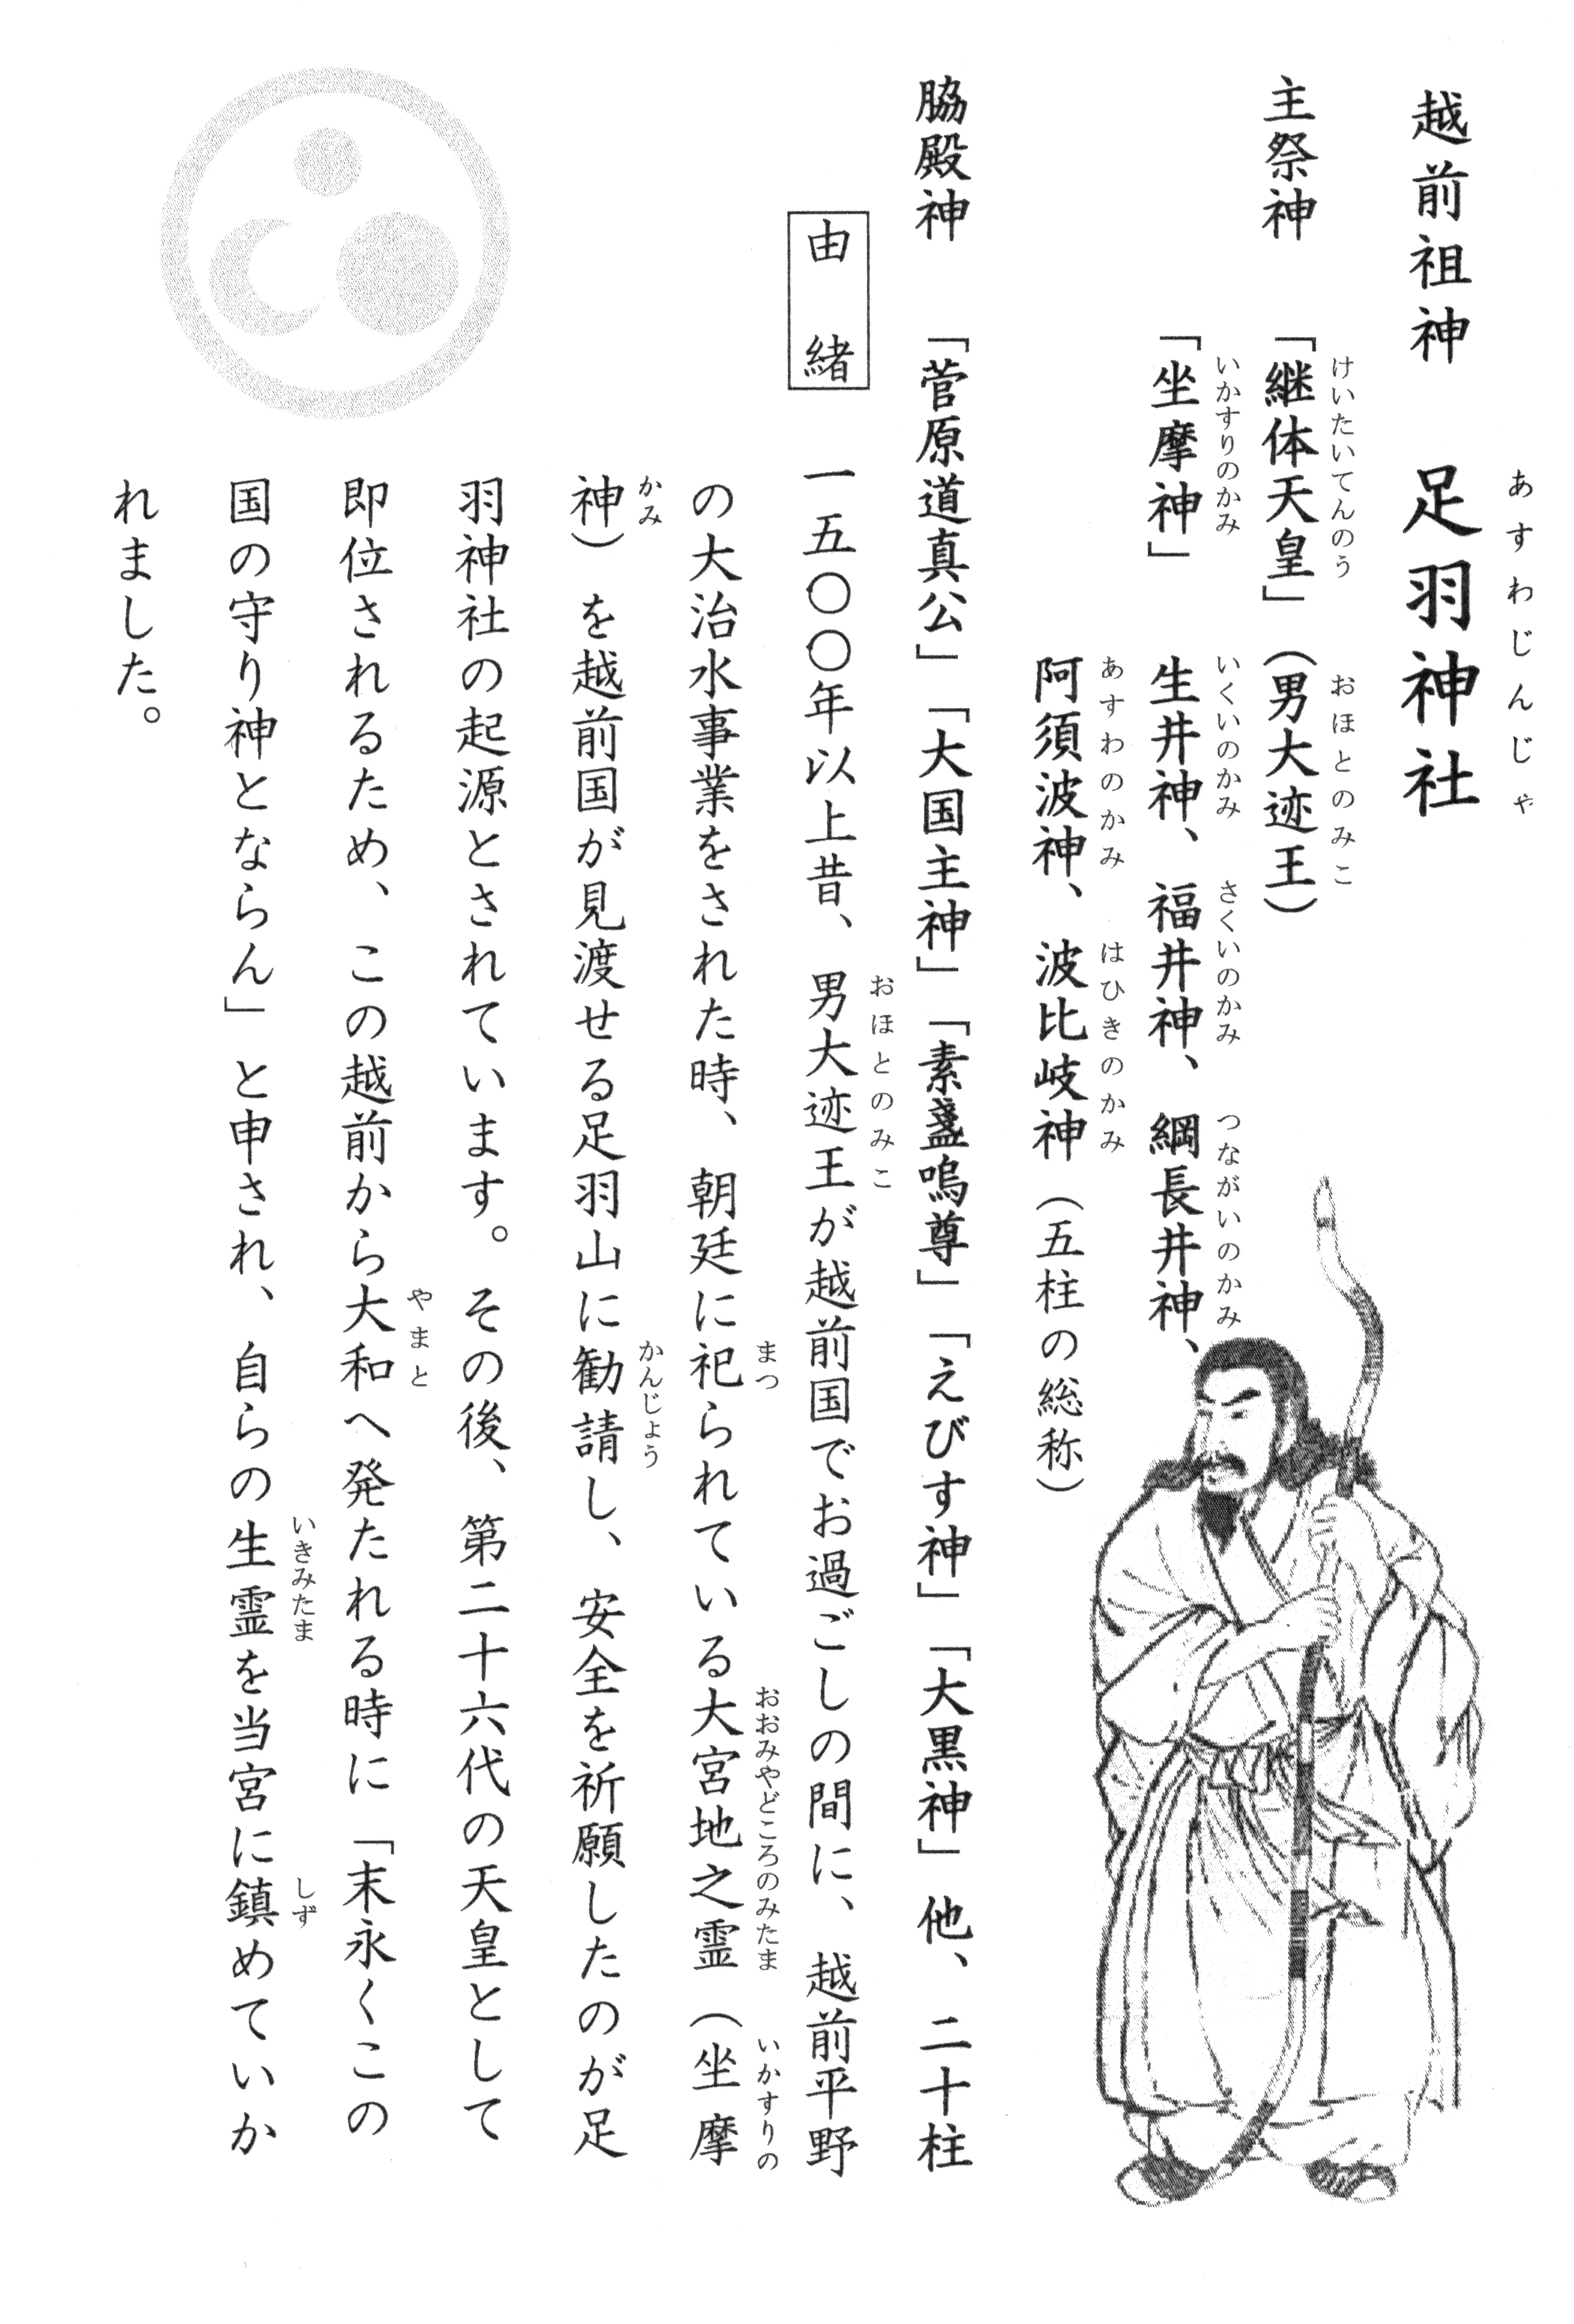 越前祖神　足羽神社
あすわじんじゃ
主祭神　「継体天皇」（男大迹王）
けいたいてんのう　おほとのみこ
「坐摩神」　生井神、福井神、綱長井神、
いかすりのかみ　いくいのかみ　さくいのかみ　つながいのかみ
阿須波神、波比岐神（五柱の総称）
あすわのかみ　はひきのかみ
脇殿神　「菅原道真公」「大国主神」「素盞嗚尊」「えびす神」「大黒神」他、二十柱
由緒　一五〇〇年以上昔、男大迹王が越前国でお過ごしの間に、越前平野
おほとのみこ
の大治水事業をされた時、朝廷に祀られている大宮地之霊（坐摩
まつ　おおみやどころのみたま　いかすりの
神）を越前国が見渡せる足羽山に勧請し、安全を祈願したのが足
かみ　かんじょう
羽神社の起源とされています。その後、第二十六代の天皇として
即位されるため、この越前から大和へ発たれる時に「末永くこの
やまと
国の守り神とならん」と申され、自らの生霊を当宮に鎮めていか
いきみたま　しず
れました。